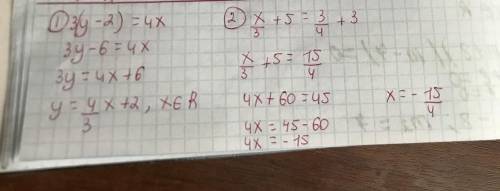 ① 3(y-2) = 4x
3y-6=4x
3y=4x+6
y = 4/3 x+2, x∈R
② x/3 + 5 = 3/4 + 3
x/3 + 5 = 15/4
4x+60=45
4x=45-60
4x=-15
x = - 15/4